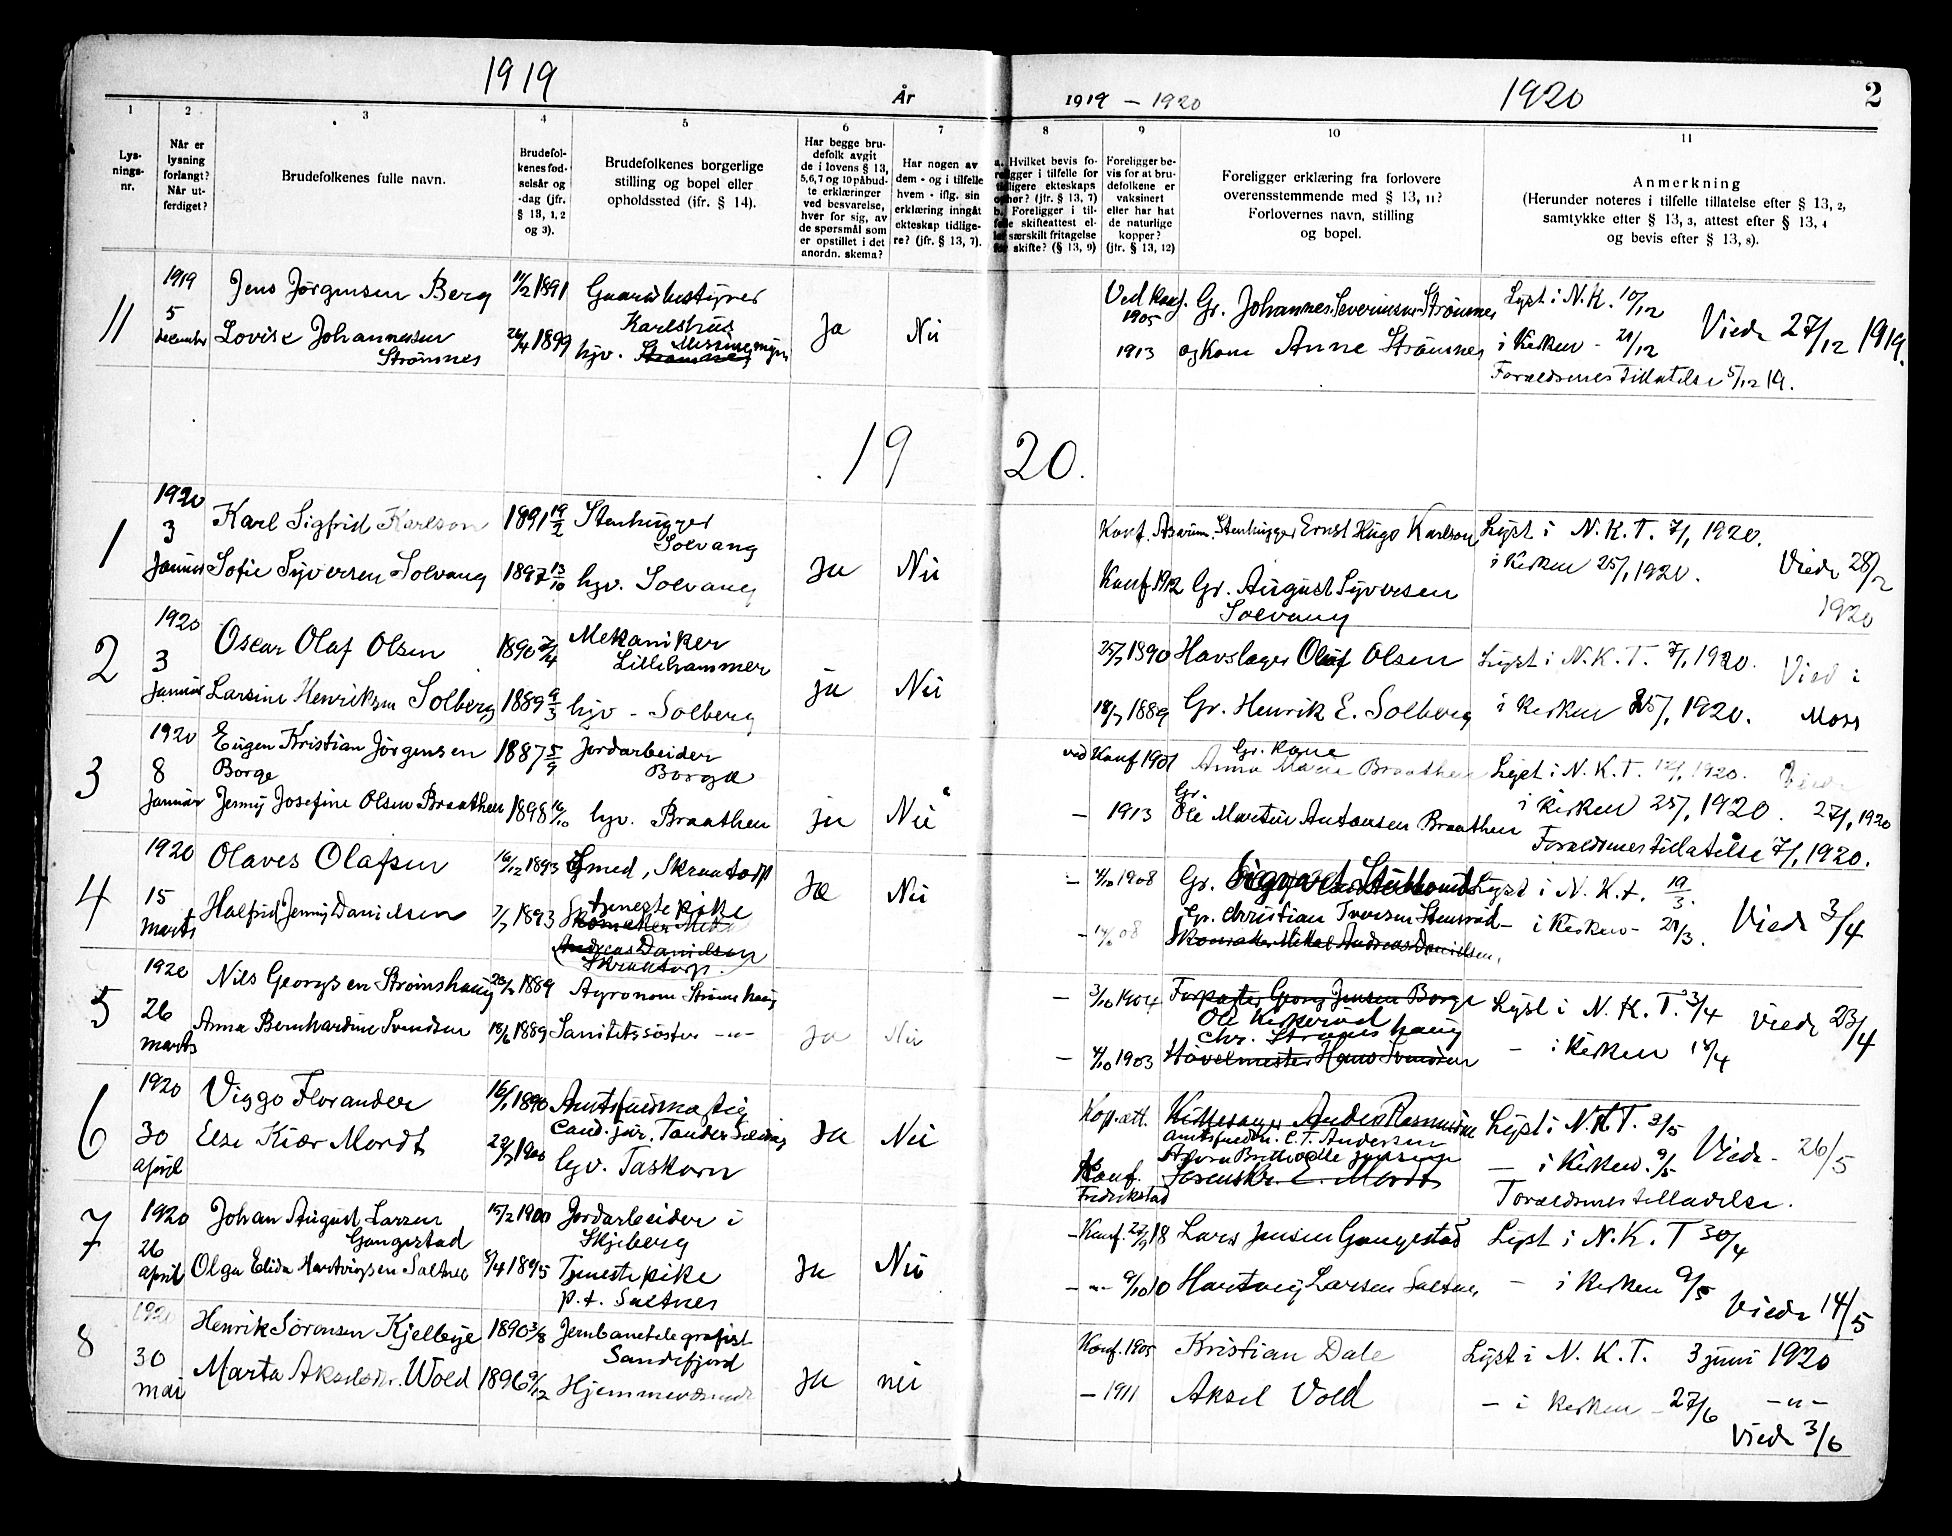 1919
År
1919 – 1920
1920
2
1
2
3
4
5
6
7
8
9
10
11
Lys-
nings-
nr.
Når er
lysning
forlangt?
Når ut-
ferdiget?
Brudefolkenes fulle navn.
Brudefol-
kenes fød-
selsår og
-dag (jfr.
§ 13, 1, 2
og 3).
Brudefolkenes borgerlige
stilling og bopel eller
opholdssted (ifr. § 14).
Har begge bru-
defolk avgit
de i lovens § 13,
5,6,7 og 10 påbud-
te erklæringer
ved besvarelse,
hver for sig, av
de spørsmål som
er opstillet i det
anordn. skema?
Har nogen av
dem - og i tilfelle
hvem - iflg. sin
erklæring inngåt
ekteskap tidlige-
re? (jfr. § 13, 7).
a. Hvilket bevis fo-
religger i tilfelle for
tidligere ekteskaps
ophør? (jfr. § 13, 7)
b. Foreligger i til-
felle skifteattest el-
ler særskilt fritagelse
for skifte? (§ 13, 9)
Foreligger be-
vis for at bru-
defolkene er
vaksinert
eller har hat
de naturlige
kopper?
(jfr. § 13, 12)
Foreligger erklæring fra forlovere
overensstemmende med § 13, 11?
Forlovernes navn, stilling
og bopel.
Anmerkning
(Herunder noteres i tilfelle tillatelse efter § 13, 2,
samtykke efter § 13, 3, attest efter § 13, 4
og bevis efter § 13, 8).
11
1919
5
december
Jens Jörgensen Berg
Lovise Johannessen
Strömnes
11/2 1891
26/4 1899
Gaardsbestyrer
Karlshus
hjv. Strömnes
Ja
Nei
Ved Konf.
1905
1913
Gr. Johannes Severinsen Strömnes
og Kone Anne Strömnes
Lyst i N.K. 10/12
i Kirken - 21/12
Foreldrenes tillatelse 5/12 19.
Viede 27/12 1919.
19 20.
1
1920
3
Januar
Karl Sigfrid Karlson
Sofie Syversen Solvang
1891 19/2
1897 13/10
Stenhugger
Solvang
hjv. Solvang
Ja
Nei
Konf. Asarum. Stenhugger Ernst Hugo Karlson
Konf 1912 Gr. August Syversen
Solvang
Lyst i N.K.T. 7/1 1920.
i Kirken 25/1 1920.
Viede 28/2
1920
2
1920
3
Januar
Oscar Olaf Olsen
Larsine Henriksen Solberg
1890 7/4
1889 9/3
Mekaniker
Lillehammer
hjv - Solberg
ja
Nei
25/7 1890 Havslager Oluf Olsen
18/7 1889 Gr. Henrik E. Solberg
Lyst i N.K.T. 7/1 1920.
i kirken 25/1 1920.
Vied i
Moss
3
1920
8
Januar
Eugen Kristian Jörgensen
Borge
Jenny Josefine Olsen Braathen
1887 5/9
1898 16/10
Jordarbeider
Borge
hjv. Braathen
ja
Nei
ved Konf 1901
– 1913
Gr. Kone
Anna Marie Braathen
Gr.
Ole Martin Antonsen Braathen
Lyst i N.K.T. 12/1 1920.
i kirken 25/1 1920.
Foreldrenes tillatelse 7/1 1920.
Viede
27/1 1920
4
1920
15
marts
Olaves Olafsen
Halfrid Jenny Danielsen
16/12 1893
7/7 1893
Smed, Skraatorp
tjenestepike
Andreas Danielsen
Skraatorp.
Ja
Nei
– 4/10 1908
Gr. Christian Iversen Stensrød
Skomaker Mikal Andreas Danielsen,
Lyst i N.K.t. 19/3.
– i Kirken - 21/3.
Viede 3/4
5
1920
26
marts
Nils Georgsen Strömshaug
Anna Bernhardine Svendsen
1889
18/6 1889
Agronom Strömshaug
Sanitetssöster –"–
Ja
Nei
– 3/10 1904
– 4/10 1903
Forpagter Georg Jensen Borge
Ole Kjperöd
Chr. Strömshaug
Hövelmester Hans Svendsen
Lyst i N.K.T. 3/4
– i Kirken 18/4
Viede 23/4
6
1920
30
april
Viggo Florander
Else Kiær Mordt
16/1 1890
29/7 1900
Amtsfuldmægtig
Cand. jur. Tønder
hjv. Taskorn
Ja
Nei
Kop.att.
Konf.
Fredrikstad
Anders Rasmussen
Amtsfuldm. C.T. Andersen
E. Mordt
Lyst i N.K.T. 3/5
– i Kirken. 9/5
Foreldrenes tilladelse.
Viede - 26/5
7
1920
26
april
Johan August Larsen
Gangestad
Olga Elida Hartvigsen Saltnes
15/2 1900
8/4 1895
Jordarbeider i
Skjeberg
Tjenestepike
p.t. Saltnes
Ja
Nei
– Konf. 18
– "– 9/10 10
Lars Jensen Gangestad
Hartvig Larsen Saltnes
Lyst i N.K.T 30/4
– i kirken 9/5
Viede 14/5
8
1920
30
mai
Henrik Sörensen Kjelbye
Marta Akselsdr. Wold
1890 3/8
1896 9/12
Jernbanetelegrafist
Sandefjord
Hjemmeværende
Ja
nei
Konf. 1905
– 1911
Kristian Dale
Aksel Vold
Lyst i N.K.T. 3 juni 1920
– i Kirken – 27/6 –"–
Viede 3/6